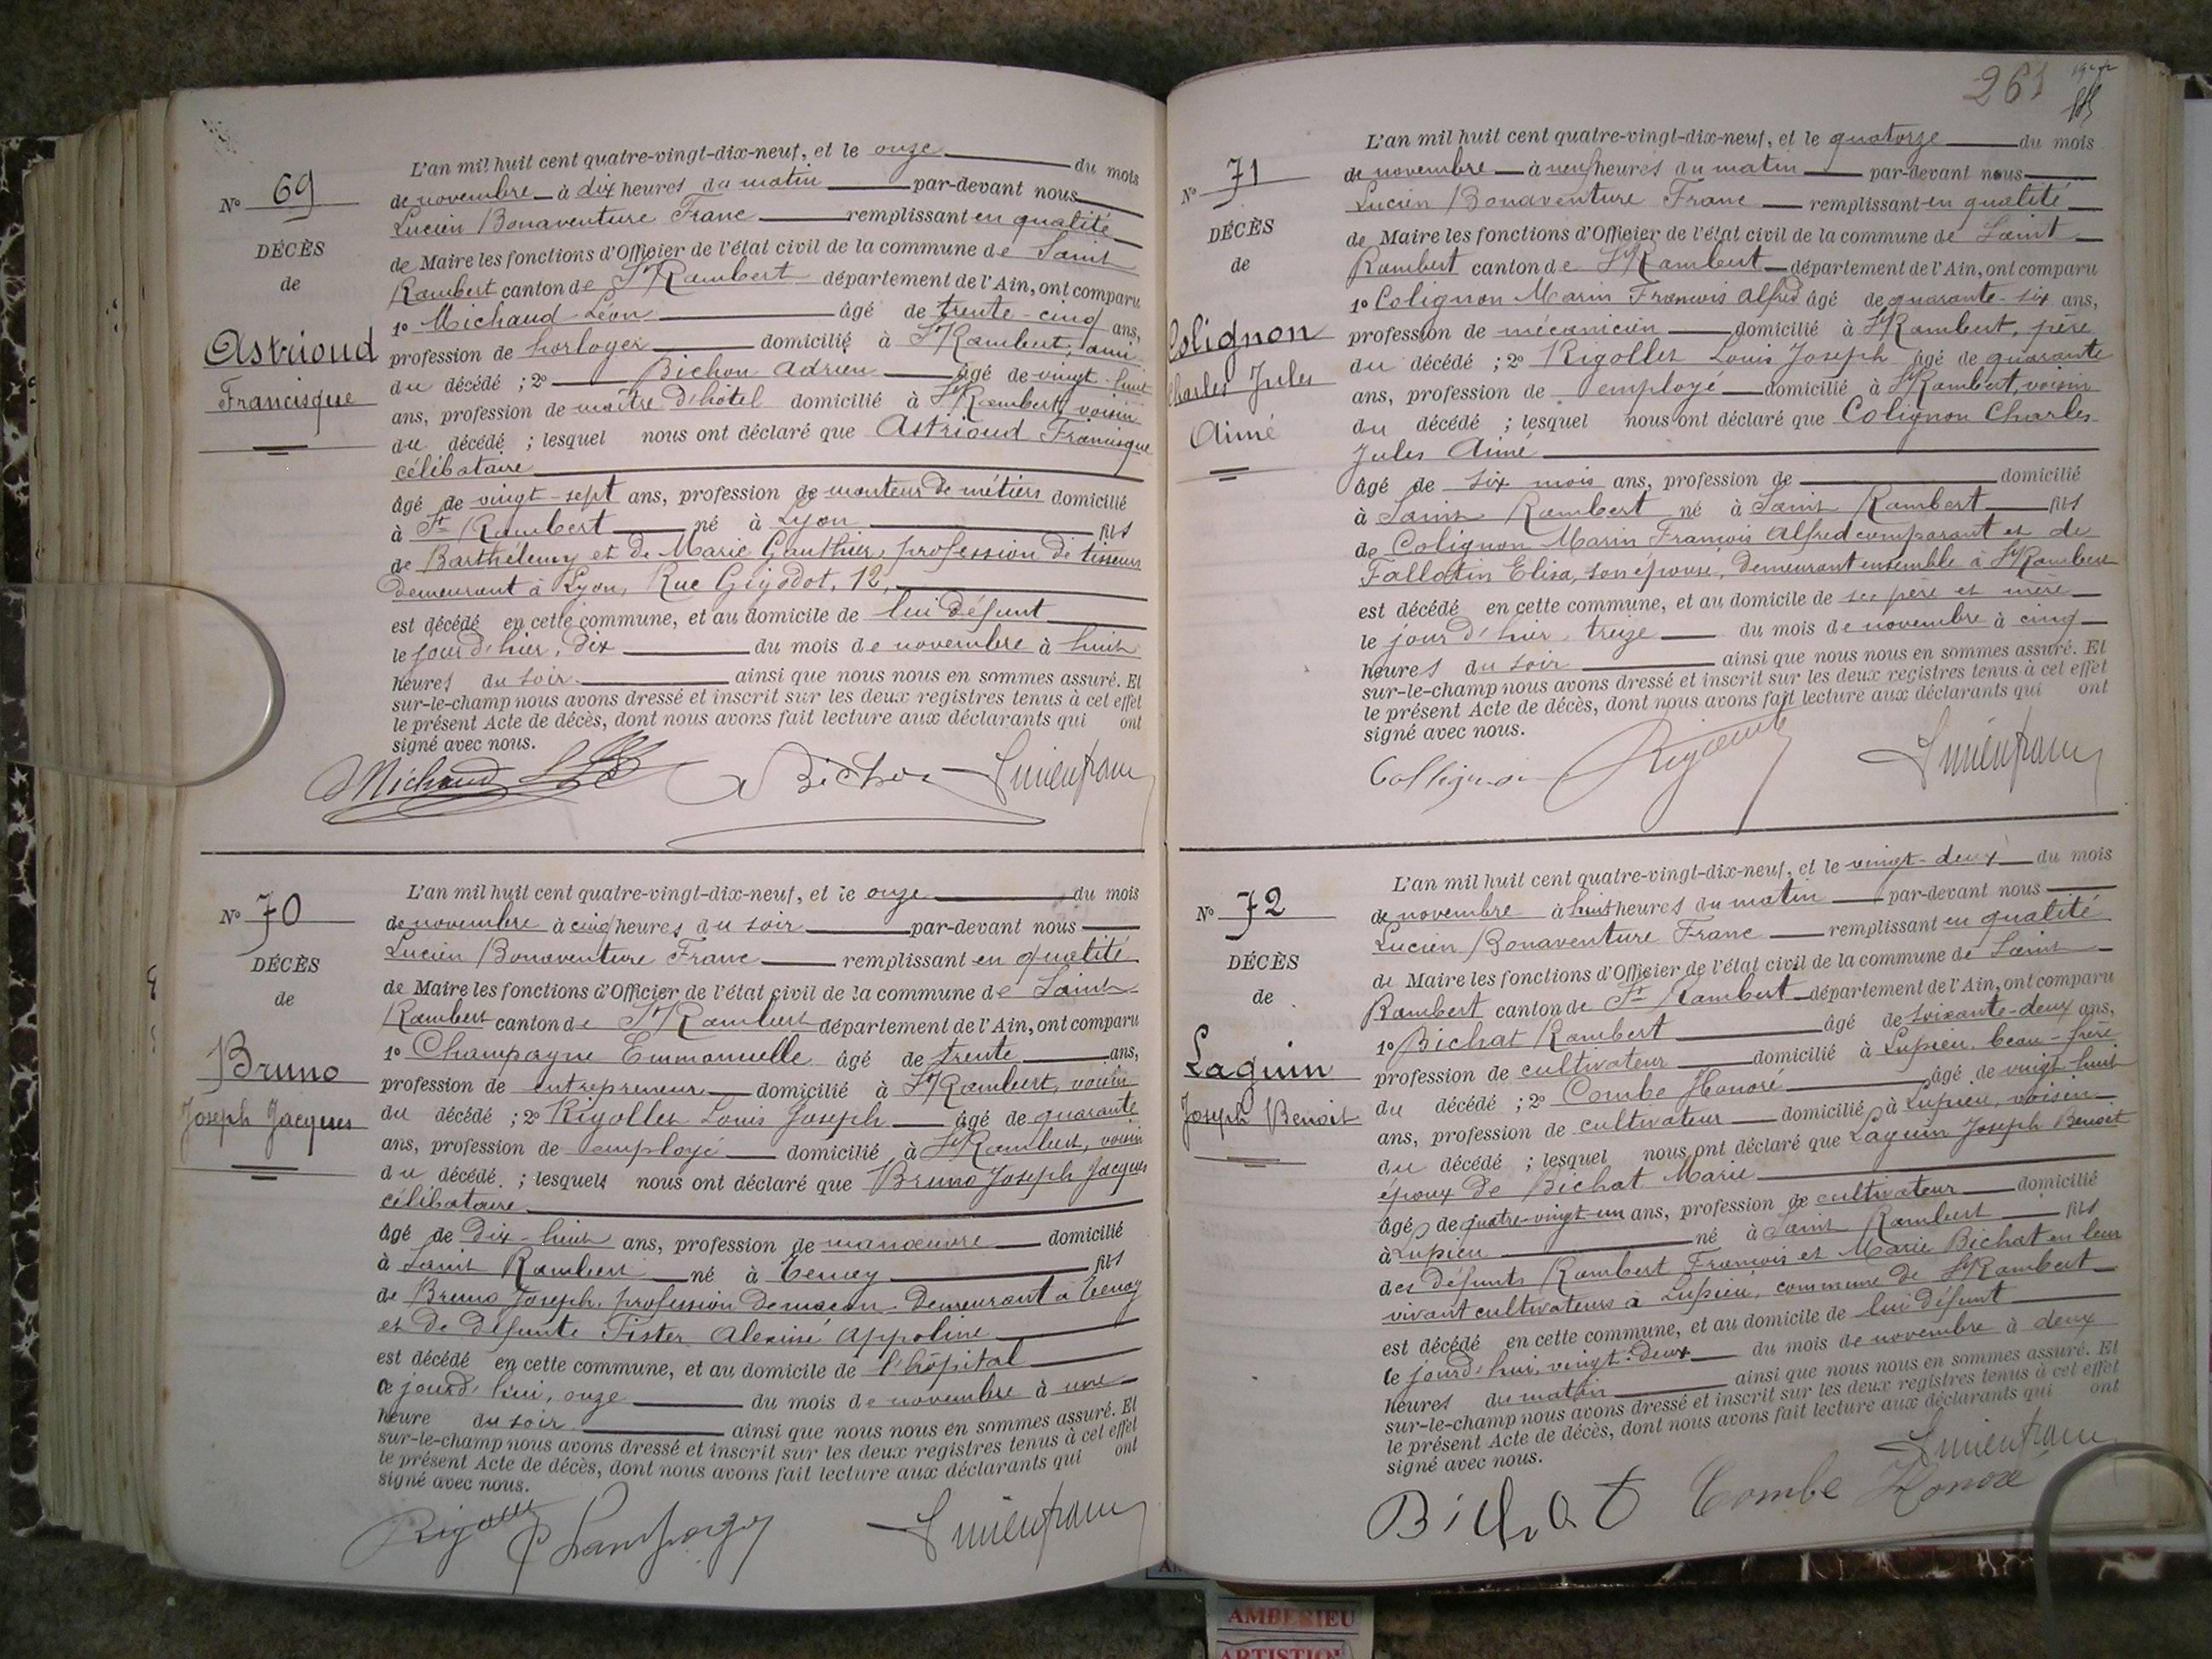 Nº 69
DÉCÈS
de
Astrioud
Francisque
L'an mil huit cent quatre-vingt-dix-neuf, et le onze du mois
de novembre à dix heures du matin par-devant nous
Lucien Bonaventure Franc remplissant en qualité
de Maire les fonctions d'Officier de l'état civil de la commune de Saint
Rambert canton de St Rambert département de l'Ain, ont comparu
1º Michaud Léon âgé de trente-cinq ans,
profession de horloger domicilié à St Rambert, ami
du décédé ; 2º Bichon Adrien âgé de vingt-huit
ans, profession de maître d'hôtel domicilié à St Rambert, voisin
du décédé ; lesquel nous ont déclaré que Astrioud Francisque
célibataire
âgé de vingt-sept ans, profession de monteur de métiers domicilié
à St Rambert né à Lyon fils
de Barthélemy et de Marie Gauthier, profession de tisseurs
demeurant à Lyon, Rue Gigodot, 12,
est décédé en cette commune, et au domicile de lui défunt
le jour d'hier, dix du mois de novembre à huit
heures du soir ainsi que nous nous en sommes assuré. Et
sur-le-champ nous avons dressé et inscrit sur les deux registres tenus à cet effet
le présent Acte de décès, dont nous avons fait lecture aux déclarants qui ont
signé avec nous.
Michaud A Bichon Lucien franc
Nº 70
DÉCÈS
de
Bruno
Joseph Jacques
L'an mil huit cent quatre-vingt-dix-neuf, et le onze du mois
de novembre à cinq heures du soir par-devant nous
Lucien Bonaventure Franc remplissant en qualité
de Maire les fonctions d'Officier de l'état civil de la commune de Saint
Rambert canton de St Rambert département de l'Ain, ont comparu
1º Champagne Emmanuelle âgé de trente ans,
profession de entrepreneur domicilié à St Rambert, voisin
du décédé ; 2º Rigollet Louis Joseph âgé de quarante
ans, profession de employé domicilié à St Rambert, voisin
du décédé ; lesquels nous ont déclaré que Bruno Joseph Jacques
célibataire
âgé de Dix-huit ans, profession de manœuvre domicilié
à Saint Rambert né à Tenay fils
de Bruno Joseph, profession de maçon demeurant à Tenay
et de défunte Tister Alexine Appoline
est décédé en cette commune, et au domicile de l'hôpital
ce jourd'hui, onze du mois de novembre à une
heure du soir ainsi que nous nous en sommes assuré. Et
sur-le-champ nous avons dressé et inscrit sur les deux registres tenus à cet effet
le présent Acte de décès, dont nous avons fait lecture aux déclarants qui ont
signé avec nous.
Rigollet Lucien franc
261
Nº 71
DÉCÈS
de
Colignon
Charles Jules
Aimé
L'an mil huit cent quatre-vingt-dix-neuf, et le quatorze du mois
de novembre à neuf heures du matin par-devant nous
Lucien Bonaventure Franc remplissant en qualité
de Maire les fonctions d'Officier de l'état civil de la commune de Saint
Rambert canton de St Rambert département de l'Ain, ont comparu
1º Colignon Marin François Alfred âgé de quarante-six ans,
profession de mécanicien domicilié à St Rambert, père
du décédé ; 2º Rigollet Louis Joseph âgé de quarante
ans, profession de employé domicilié à St Rambert, voisin
du décédé ; lesquel nous ont déclaré que Colignon Charles
Jules Aimé
âgé de six mois ans, profession de domicilié
à Saint Rambert né à Saint Rambert fils
de Colignon Marin François Alfred comparant et de
Fallatin Elisa, son épouse, demeurant ensemble à St Rambert
est décédé en cette commune, et au domicile de ses père et mère
le jour d'hier treize du mois de novembre à cinq
heures du soir ainsi que nous nous en sommes assuré. Et
sur-le-champ nous avons dressé et inscrit sur les deux registres tenus à cet effet
le présent Acte de décès, dont nous avons fait lecture aux déclarants qui ont
signé avec nous.
Collignon Rigollet Lucien franc
Nº 72
DÉCÈS
de
Laguin
Joseph Benoit
L'an mil huit cent quatre-vingt-dix-neuf, et le vingt-deux du mois
de novembre à huit heures du matin par-devant nous
Lucien Bonaventure Franc remplissant en qualité
de Maire les fonctions d'Officier de l'état civil de la commune de Saint
Rambert canton de St Rambert département de l'Ain, ont comparu
1º Bichat Rambert âgé de soixante-deux ans,
profession de cultivateur domicilié à Lupieu, beau-frère
du décédé ; 2º Combe Honoré âgé de vingt-huit
ans, profession de cultivateur domicilié à Lupieu, voisin
du décédé ; lesquel nous ont déclaré que Laguin Joseph Benoit
époux de Bichat Marie
âgé de quatre-vingt-un ans, profession de cultivateur domicilié
à Lupieu né à Saint Rambert fils
des défunts Rambert François et Marie Bichat en leur
vivant cultivateurs à Lupieu, commune de St Rambert
est décédé en cette commune, et au domicile de lui défunt
le jourd'hui, vingt-deux du mois de novembre à deux
heures du matin ainsi que nous nous en sommes assuré. Et
sur-le-champ nous avons dressé et inscrit sur les deux registres tenus à cet effet
le présent Acte de décès, dont nous avons fait lecture aux déclarants qui ont
signé avec nous.
Lucien franc
Bichat Combe Honoré
AMBERIEU
ARTISTIQU